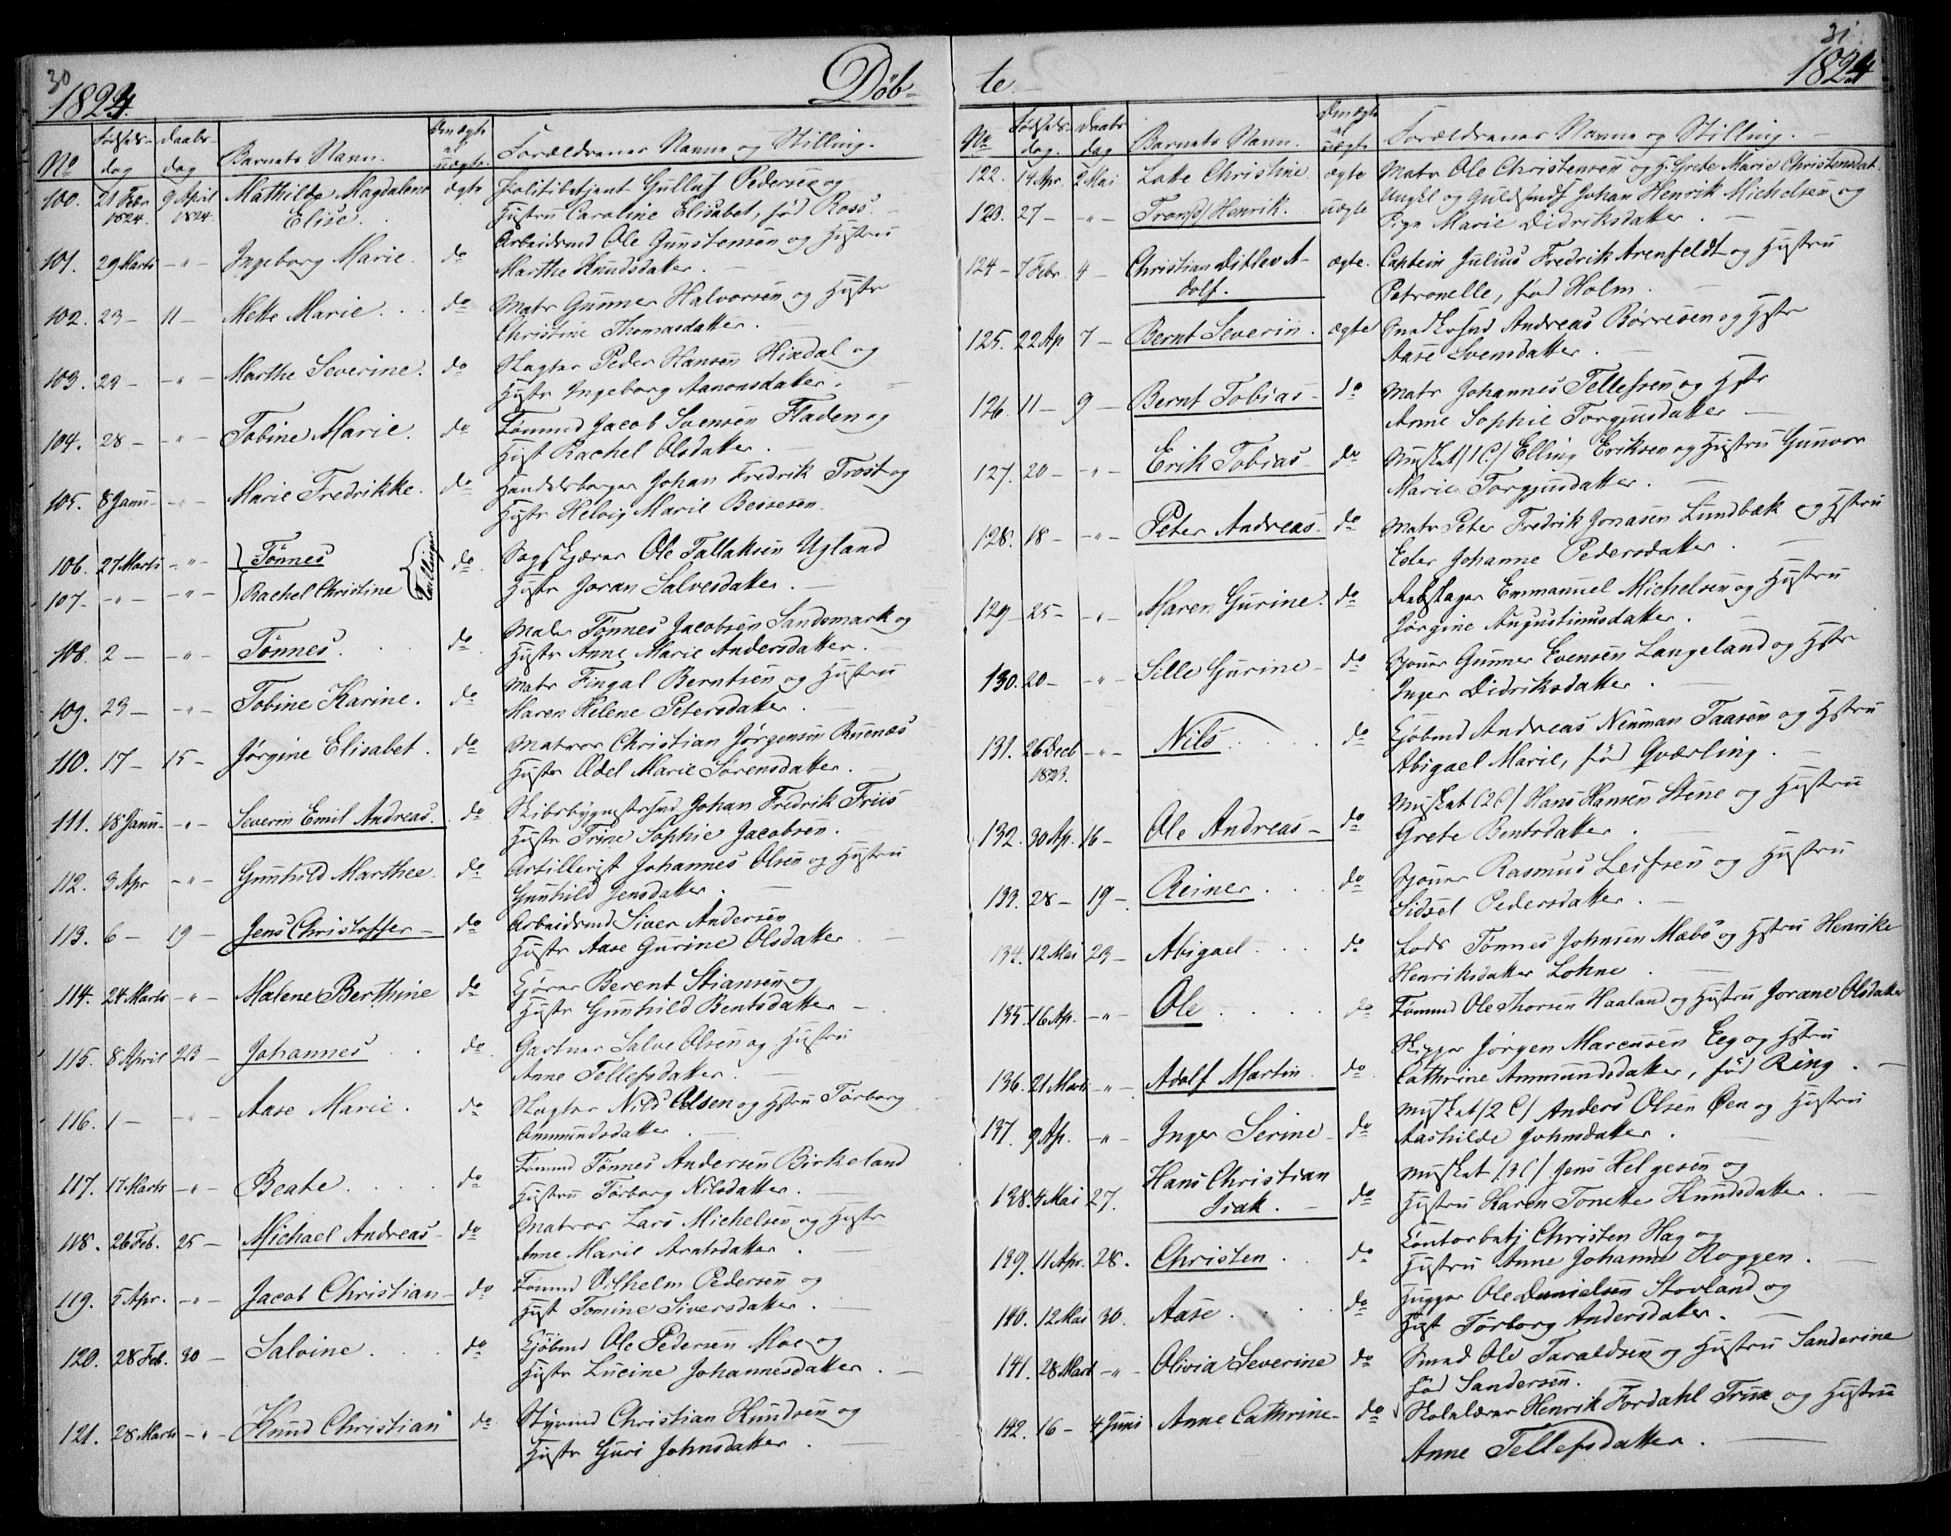 30
1824.
Døb-
No
Fødsels-
dag
Daabs-
dag
Barnets Navn.
Om ægte
el
uægte.
Forældrenes Navne og Stilling.
100. 21 Febr 1824. 9 April 1824. Mathilde Magdalena ægte Politibetjent Gulluf Pedersen og
Elise. Hustru Caroline Elisabet, fød Ross.
101. 29 Marts -"- Ingeborg Marie. do Arbeidsmd Ole Gunstensen og Hustru
Marthe Knudsdatter.
102. 23 - 11 - Mette Marie. do Matr Gunner Halvorsen og Hustr
Christine Thomasdatter.
103. 24 - -"- Marthe Severine. do Slagter Peder Hansen Hiadal og
Hustr Ingeborg Aanonsdatter.
104. 28 - -"- Tobine Marie. do Tømmd Jacob Svensen Fladen og
Hust Rachel Olsdatter.
105. 8 Janu - -"- Marie Fredrikke. do Handelsborger Johan Fredrik Trost og
Hustr Helvig Marie Bessesen.
106. 27 Marts -"- Tønnes } Tvillinger do Sagskjærer Ole Tallaksen Ugland
107 - -"- -"- Rachel Christine Hustr Joran Salvesdatter.
108. 2 - -"- Tønnes. do Maler Tønnes Jacobsen Sandsmark og
Hustr Anne Marie Andersdatter.
109. 23 - -"- Tobine Karine. do Matr Fingal Berntsen og Hustru
Maren Helene Petersdatter.
110. 17 - 15 - Jørgine Elisabet. do Matros Christian Jørgensen Ruenæs
Hustr Edel Marie Sørensdatter.
111. 18 Janu - -"- Severin Emil Andreas. do Skibsbygmestersvd Johan Fredrik Friis
Hustr Trine Sophie Jacobsen.
112. 3 Apr -"- Gunhild Marthee. do Artillerist Johannes Olsen og Hustru
Gunhild Jensdatter.
113. 6 - 19 - Jens Christoffer - do Arbeidsmd Siver Andersen
Hustr Aase Gurine Olsdatter.
114. 24 Marts -"- Malene Berthine do Gjører Berent Stiansen og
Hustr Gunhild Bentsdatter -
115. 8 April 23 - Johannes do Gartner Salve Olsen og Hustru
Anne Tellefsdatter.
116. 1 - " - Aase Marie. do Slagter Nils Olsen og Hstru Tørborg
Ammundsdatter.
117. 17 Marts -"- Beate. do Tømmd Tønnes Andersen Birkeland
Hustru Tørborg Nilsdatter.
118. 26 Feb. 25 - Michael Andreas - do Matros Lars Michelsen og Hustr
Anne Marie Arntsdatter.
119. 5 Apr. -"- Jacob Christian - do Tømmd Vilhelm Pedersen og
Hust Tomine Siversdatter.
120. 28 Feb. 30 - Salvine. do Gjøbmd Ole Pedersen Moe og
Hustr Lucine Johannesdatter.
121. 28 Marts -"- Knud Christian do Styrmd Christian Knudsen og
Hustr Guri Johnsdatter.
31
1824
te.
No
Fødsels-
dag.
Daabs
dag
Barnets Navn.
Om ægte
el
uægte
Forældrenes Navne og Stilling.
122. 14 Apr. 2 Mai Late Christine. ægte Matr Ole Christensen og H. Grete Marie Christensdat.
123. 27 - -"- Henrik. uægte Johan Henrik Michelsen og
Pige Marie Didriksdatter.
124 - 7 Febr. 4 - Christian Ditlev A- ægte. Captein Julius Fredrik Arenfeldt og Hustru
dolf. Petronelle, fød Holm.
125. 22 Ap 7 - Bernt Severin. ægte Andreas Børresen og Hstr
Aase Svensdatter.
126. 11 - 9 - Bernt Tobias - do Matr Johannes Tellefsen og Hstr
Anne Sophie Torgjusdatter
127. 20 - -"- Erik Tobias - do Muskat (1 C.) Elling Eriksen og Hustru Gunvor
Marie Torgjusdatter.
128. 18 - -"- Peter Andreas. do Matr Peter Fredrik Jonasen Lundbæk og Hstru
Ester Johanne Pedersdatter.
129 - 25 - -"- Maren Gurine. do Rebslager Emmanuel Michelsen og Hustru
Jørgine Augustinusdatter.
130. 20 - -"- Sille Gurine - do Sjouer Gunner Evensen Langeland og Hstr
Inger Didriksdatter.
131. 26 Decb 1823. -"- Nils do Gjøbmd Andreas Neuman Taasen og Hstru
Abigael Marie, fød Qværling.
132. 30 Ap. 16 - Ole Andreas - do Muskat (2 C) Hans Hansen Stene og Hustru
Grete Bentsdatter
133. 28 - 19 - Reiner. do Sjouer Rasmus Leifsen og Hustru
Sidsel Pedersdatter.
134. 12 Mai 23 - Abigael. do Lods Tønnes Johnsen Mæbø og Hstru Henrike
Henriksdatter Lohne.
135. 16 Ap. -"- Ole. do Tømmd Ole Thorsen Haaland og Hustru Jorane Olsdatter
136. 21 Marts -"- Adolf Martin do Skipper Jørgen Marcusen Eeg og Hstru
Cathrine Ammundsdatter, fød Ring.
137. 9 Ap. -"- Inger Serine - do Muskat (2 C) Anders Olsen Øen og Hustru
Aashilde Johnsdatter.
138. 4 Mai 27. Hans Christian do Muskat (3 C) Jens Helgesen og
Isak. - Hustru Karen Tonette Knudsdatter.
139. 11 Apr. 28. Christen. do Contorbetj Christen Hag og
Hustru Anne Johanne Roggen.
140. 12 Mai 30. Aase. do Ole Danielsen Stovland og
Hust Tørborg Andersdatter.
141. 28 Marts -"- Olivia Severine do Smed Ole Taraldsen og Hustru Sanderine
fød Sandersen.
142. 16 - 4 Juni Anne Cathrine - do Skolelærer Henrik Fordahl Friis og Hustru
Anne Tellefsdatter.